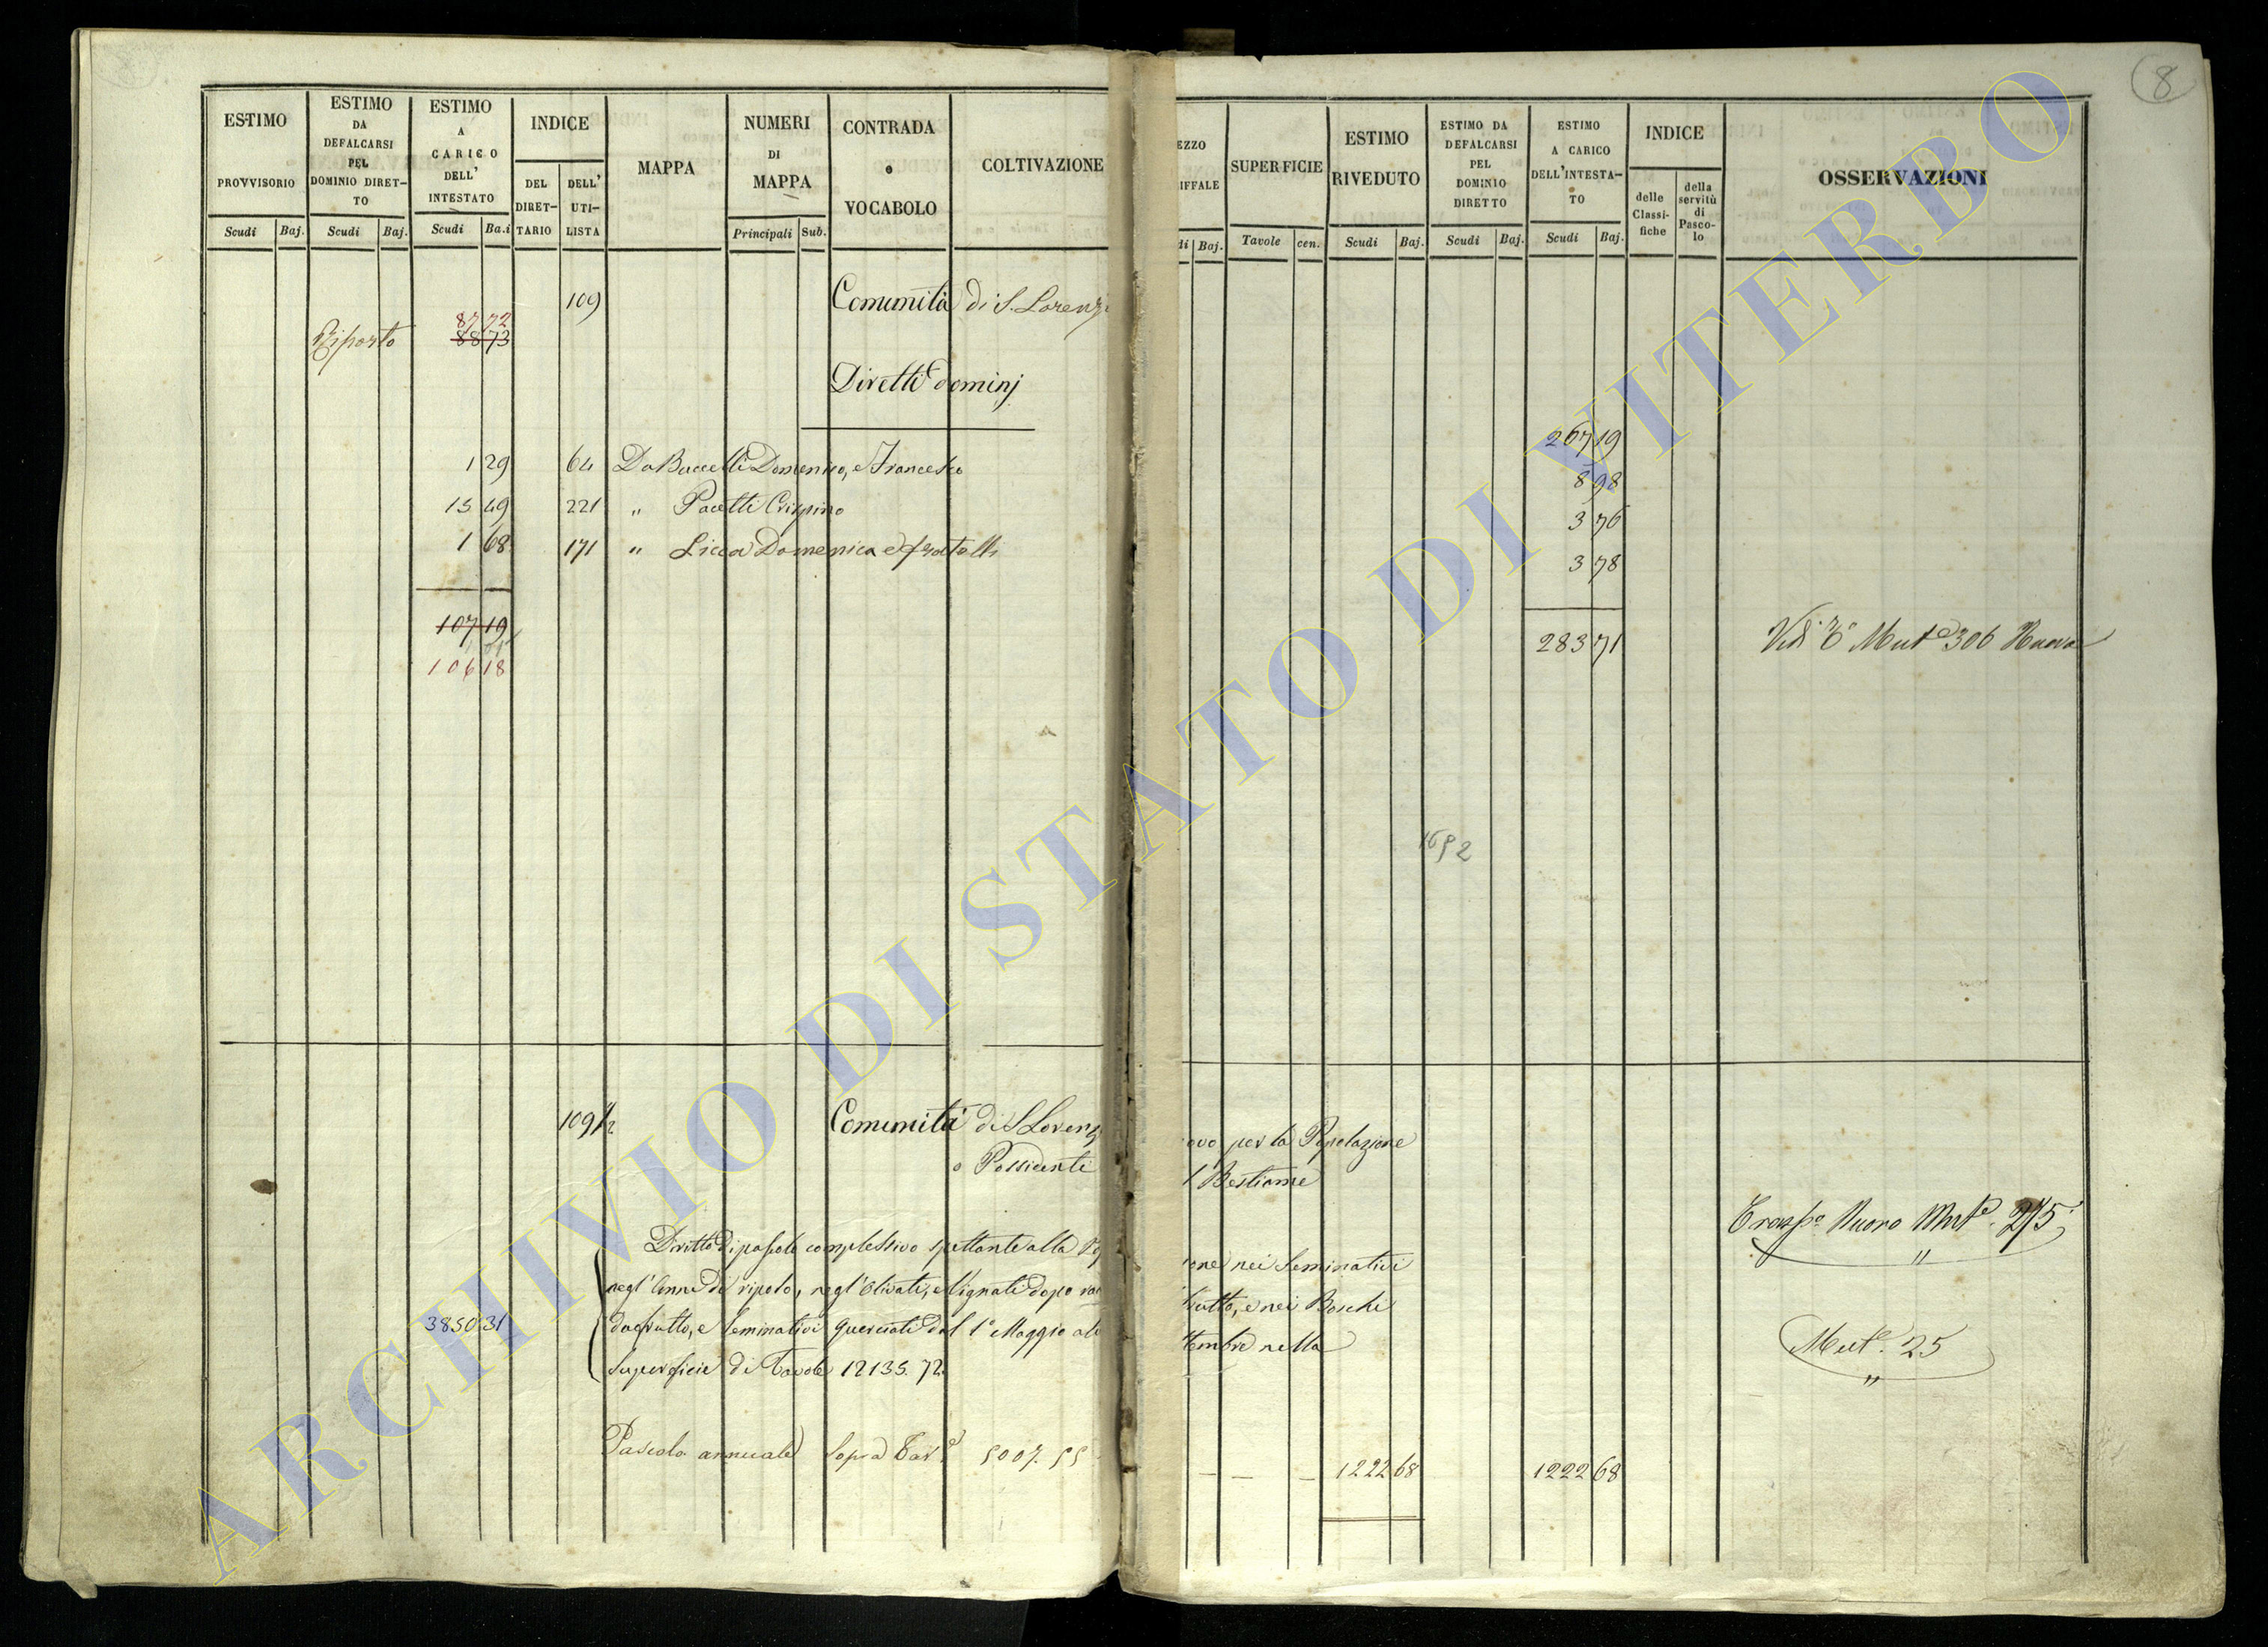 8
ESTIMO PROVVISORIO
ESTIMO DA DEFALCARSI PEL DOMINIO DIRET-TO
ESTIMO A CARICO DELL' INTESTATO
INDICE
DEL DIRET-TARIO
DELL' UTI-LISTA
MAPPA
NUMERI DI MAPPA
CONTRADA o VOCABOLO
COLTIVAZIONE
EZZO IFFALE
SUPERFICIE
ESTIMO RIVEDUTO
ESTIMO DA DEFALCARSI PEL DOMINIO DIRETTO
ESTIMO A CARICO DELL'INTESTA-TO
INDICE
delle Classi-fiche
della servitù di Pasco-lo
OSSERVAZIONI
Scudi Baj. Scudi Baj. Scudi Ba.i Principali Sub.
di Baj. Tavole cen. Scudi Baj. Scudi Baj. Scudi Baj.
109 Comunità di S. Lorenz
87 72
Riporto 88 73
Diretti dominj
267 19
1 29 64 Da Buccelli Domenico, e Francesco
8 98
15 49 221 " Pacetti Crispino
3 76
1 68 171 " Licca Domenica e fratelli
3 78
107 19
283 71
106 18
Mut 306 Nuova
1692
109 1/2 Comunità di S Lorenz ovo per la Popolazione
o Possidenti l Bestiame
Diritto di pascolo complessivo spettante alla Po one nei Seminativi
negl'Anni di riposo, negl'Olivati, e Vignati dopo frutto, e nei Boschi
3850 31 da frutto, e Seminativi Querciati dal 1° Maggio a tembre nella
Superficie di Tavole 12135. 72
Trasp.o Nuovo Mut.e 275
"
Mut.e 25
"
Pascolo annuale Sopra Tav.e 5007. 55 — — — 1222 68 1222 68
ARCHIVIO DI STATO DI VITERBO